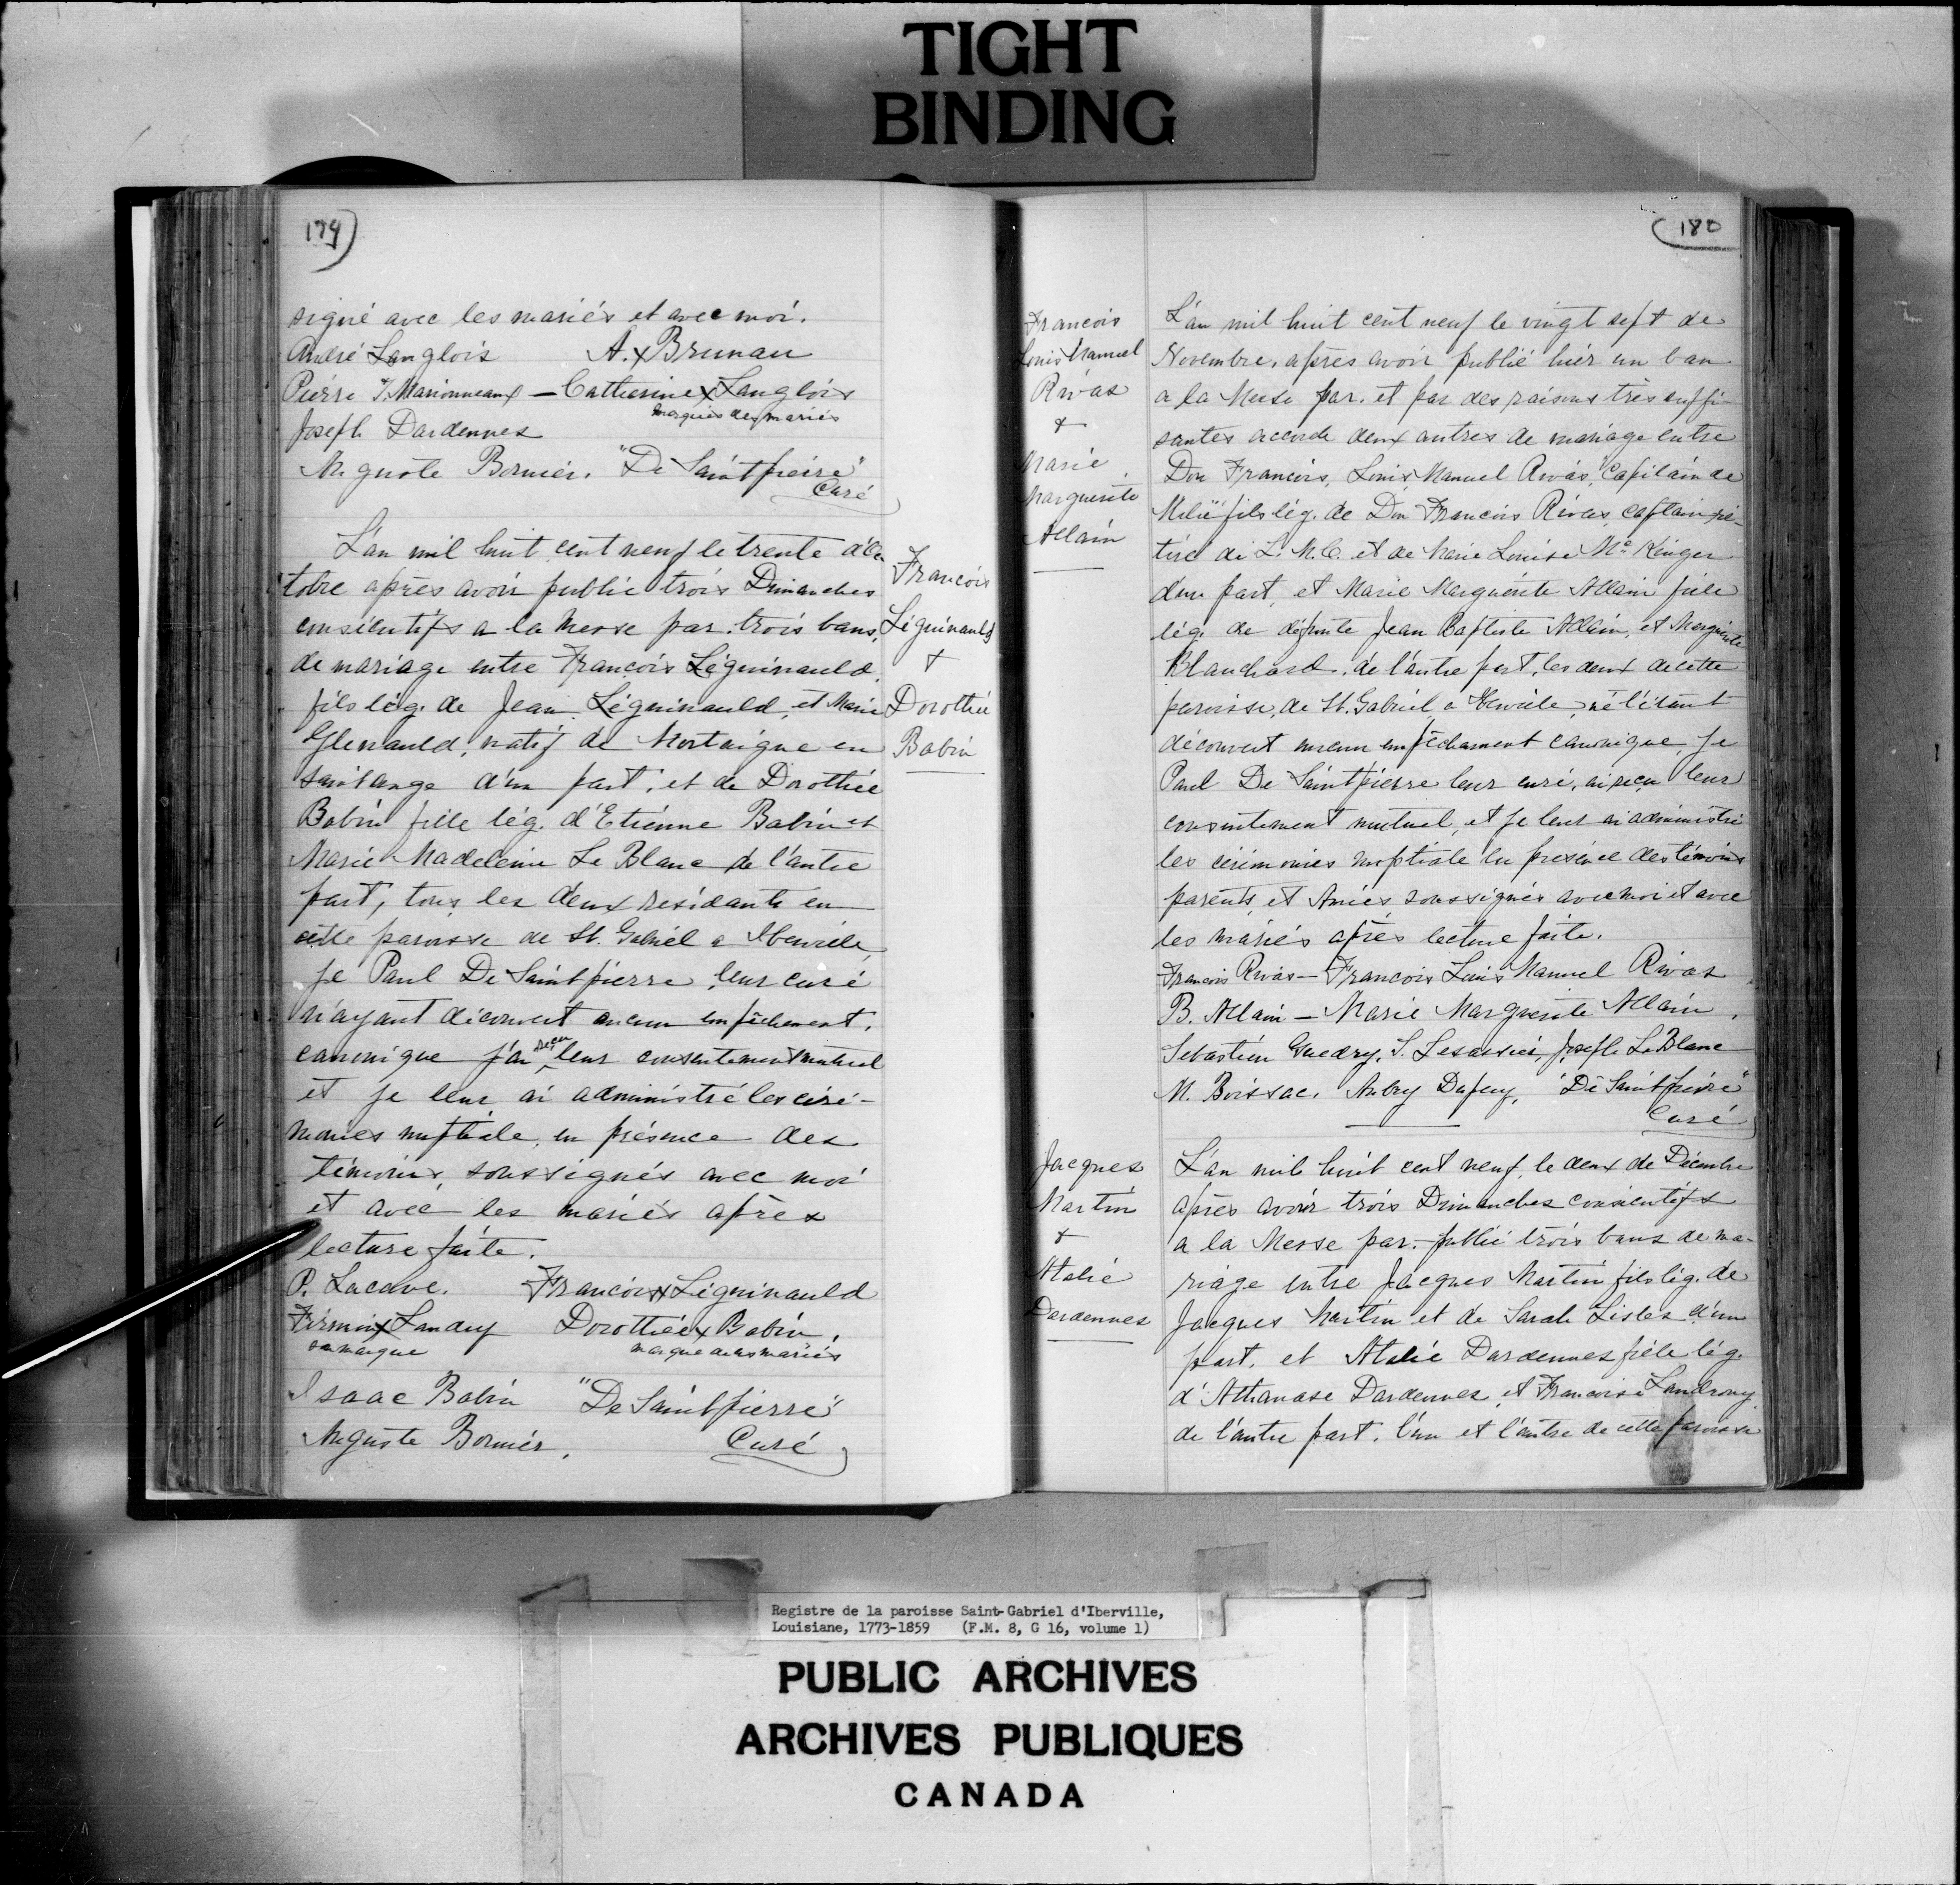 TIGHT
BINDING
179
signé avec les mariés et avec moi.
André Langlois A. x Brunau
Pierre J. Marionneaux — Catherine x Langlois
marques des mariés
Joseph Dardennes
Auguste Bornier. "De Saintpierre"
Curé
L'an mil huit cent neuf le trente d'Oc
tobre après avoir publié trois Dimanches
consécutifs a la Messe par. trois bans,
de mariage entre François Léguinauld,
fils lég. de Jean Léguinauld, et Marie
Glenauld, natif de Mortaigne en
Saintange d'un part, et de Dorothée
Babin fille lég. d'Etienne Babin et
Marie Madeleine Le Blanc de l'autre
part, tous les deux residants en
cette paroisse de St. Gabriel a Iberville,
je Paul De Saintpierre, leur curé
n'ayant découvert aucun empêchement,
canonique j'ai reçu leur consentement mutuel
et je leur ai administré les céré-
monies nuptiale, en présence des
témoins, soussignés avec moi
et avec les mariés après
lecture faite.
P. Lacave. François x Léguinauld
Firmin x Landry Dorothée x Babin.
sa marque marque de ces mariés
Isaac Babin "De Saintpierre"
Auguste Bornier. Curé
François
Léguinauld
+
Dorothée
Babin
180
François
Louis Manuel
Rivas
+
Marie
Marguerite
Allain
L'an mil huit cent neuf le vingt sept de
Novembre, après avoir publié hier un ban
a la Messe par. et par des raisons très suffi-
santes accordé deux autres de mariage entre
Don François, Louis, Manuel Rivas, Capitain de
Milice fils lég. de Don François Rivas, captain ré-
tiré de L. M. C. et de Marie Louise Mc Kinger
d'un part, et Marie Marguerite Allain fille
lég. de défunte Jean Baptiste Allain, et Marguerite
Blanchard, de l'autre part, les deux de cette
paroisse, de St. Gabriel, a Iberville, ne l'étant
découvert aucun empêchament canonique, je
Paul De Saintpierre leur curé, ai reçu leur
consentement mutuel, et je leur ai administré
les cérémonies nuptiale en presence des témoins
parents, et Amies soussignés avec moi et avec
les mariés après lecture faite.
François Rivas — François Louis Manuel Rivas
B. Allain — Marie Marguerite Allain,
Sebastien Guedry, S. Lesassier, Joseph LeBlanc
M. Boissac, Aubry Dupuy, "De Saintpierre"
Curé
Jacques
Martin
+
Atalie
Dardennes
L'an mil huit cent neuf, le deux de Décembre
après avoir trois Dimanches consécutifs
a la Messe par. publié trois bans de ma-
riage entre Jacques Martin fils lég. de
Jacques Martin et de Sarah Lisles d'un
part, et Atalie Dardennes fille lég.
d'Athanase Dardennes, et Françoise Landrony,
de l'autre part, l'un et l'autre de cette paroisse
Registre de la paroisse Saint-Gabriel d'Iberville,
Louisiane, 1773-1859 (F.M. 8, G 16, volume 1)
PUBLIC ARCHIVES
ARCHIVES PUBLIQUES
CANADA